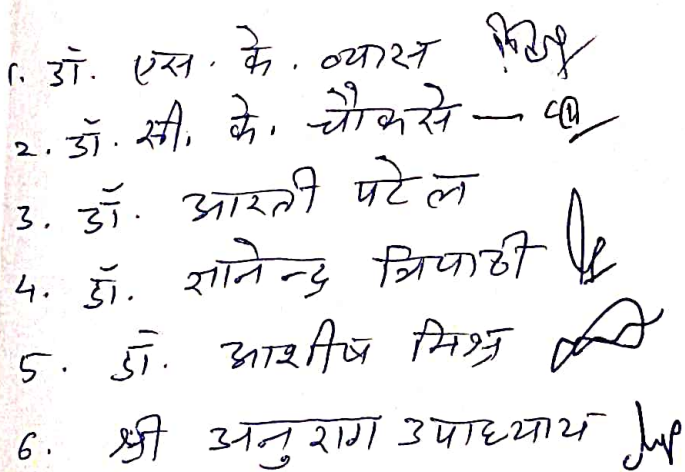 1. डॉ. एस. के. व्यास
2. डॉ. सी. के. चौकसे —
3. डॉ. आरती पटेल
4. डॉ. ज्ञानेन्द्र त्रिपाठी
5. डॉ. आशीष मिश्र
6. श्री अनुराग उपाध्याय